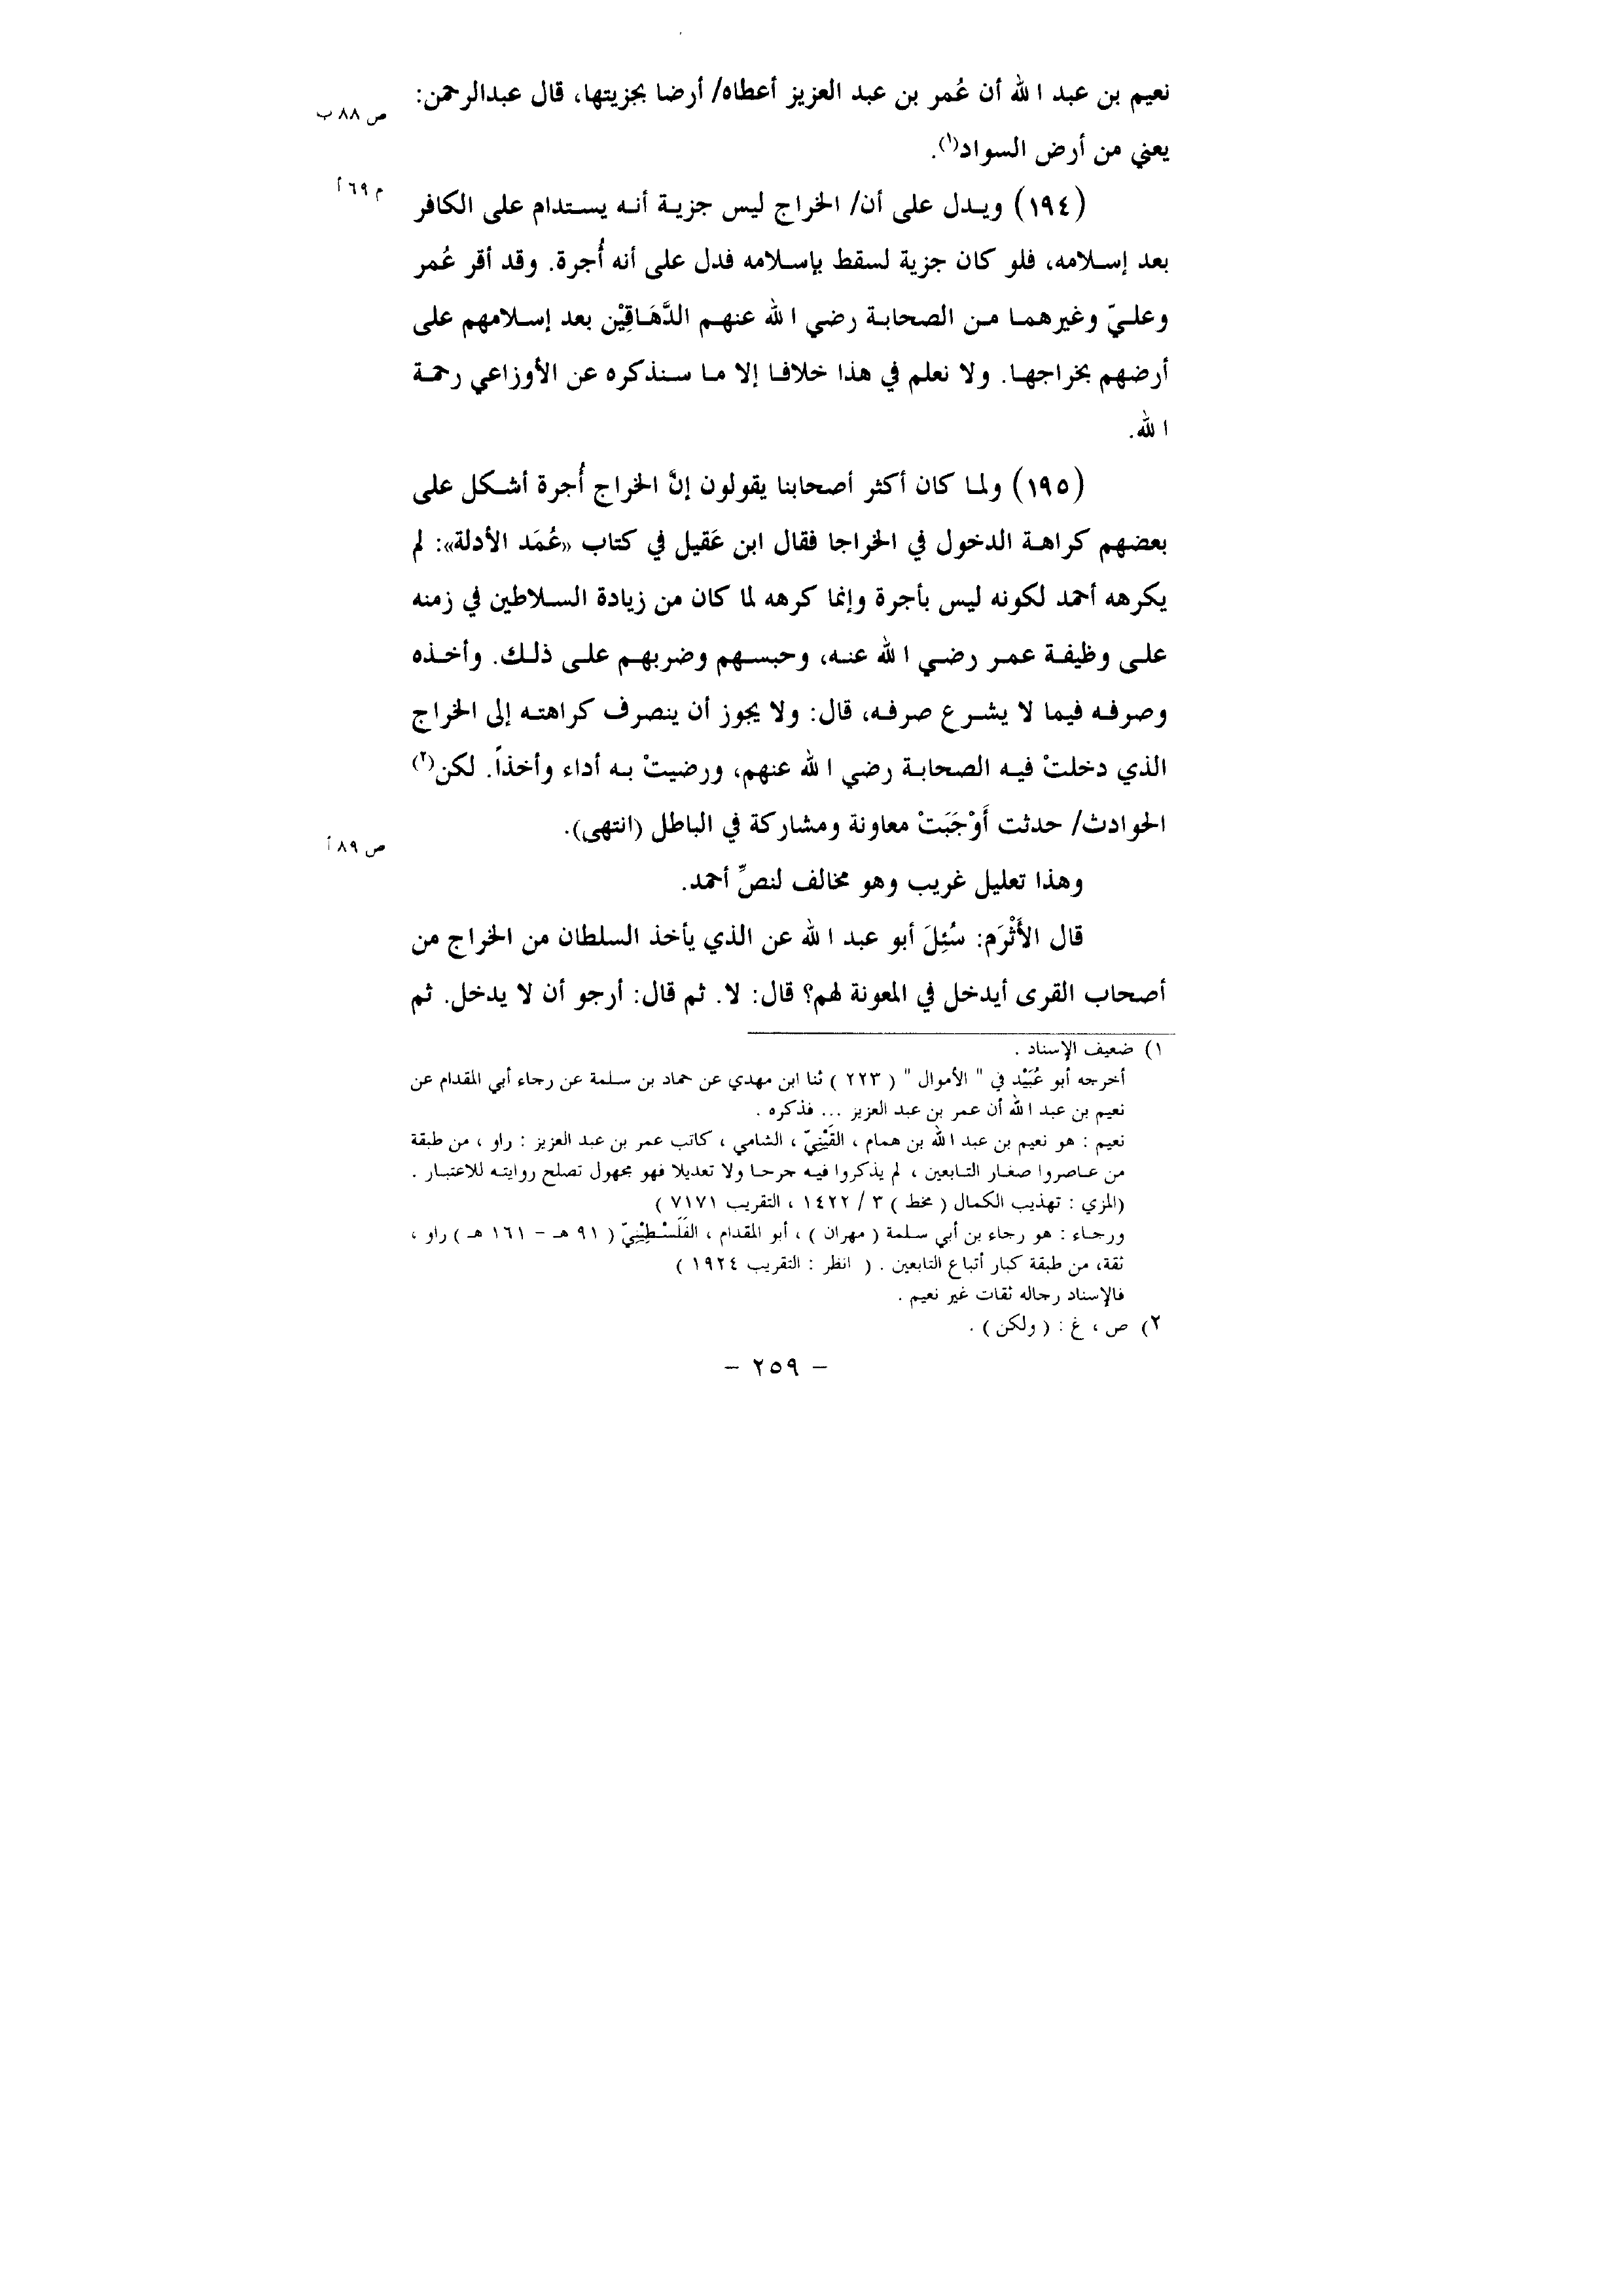 نعيم بن عبد الله أن عُمر بن عبد العزيز أعطاه/ أرضا بجزيتها، قال عبدالرحمن:
ص ٨٨ ب
يعني من أرض السواد(١).
م ٦٩ أ
(١٩٤) ويدل على أن/ الخراج ليس جزية أنه يستدام على الكافر
بعد إسلامه، فلو كان جزية لسقط بإسلامه فدل على أنه أُجرة. وقد أقر عُمر
وعليّ وغيرهما من الصحابة رضي الله عنهم الدَّهَاقِيْن بعد إسلامهم على
أرضهم بخراجها. ولا نعلم في هذا خلافا إلا ما سنذكره عن الأوزاعي رحمة
الله.
(١٩٥) ولما كان أكثر أصحابنا يقولون إنَّ الخراج أُجرة أشكل على
بعضهم كراهة الدخول في الخراجا فقال ابن عَقيل في كتاب «عُمَد الأدلة»: لم
يكرهه أحمد لكونه ليس بأجرة وإنما كرهه لما كان من زيادة السلاطين في زمنه
على وظيفة عمر رضي الله عنه، وحبسهم وضربهم على ذلك. وأخذه
وصرفه فيما لا يشرع صرفه، قال: ولا يجوز أن ينصرف كراهته إلى الخراج
الذي دخلتْ فيه الصحابة رضي الله عنهم، ورضيتْ به أداء وأخذاً. لكن(٢)
الحوادث/ حدثت أَوْجَبَتْ معاونة ومشاركة في الباطل (انتهى).
ص ٨٩ أ
وهذا تعليل غريب وهو مخالف لنصِّ أحمد.
قال الأَثْرَم: سُئِلَ أبو عبد الله عن الذي يأخذ السلطان من الخراج من
أصحاب القرى أيدخل في المعونة لهم؟ قال: لا. ثم قال: أرجو أن لا يدخل. ثم
١) ضعيف الإسناد .
أخرجه أبو عُبَيْد في " الأموال " ( ٢٢٣ ) ثنا ابن مهدي عن حماد بن سلمة عن رجاء أبي المقدام عن
نعيم بن عبد الله أن عمر بن عبد العزيز ... فذكره .
نعيم : هو نعيم بن عبد الله بن همام ، القَيْنِيّ ، الشامي ، كاتب عمر بن عبد العزيز : راو ، من طبقة
من عاصروا صغار التابعين ، لم يذكروا فيه جرحا ولا تعديلا فهو مجهول تصلح روايته للاعتبار .
(المزي : تهذيب الكمال ( مخط ) ٣ / ١٤٢٢ ، التقريب ٧١٧١ )
ورجاء : هو رجاء بن أبي سلمة ( مهران ) ، أبو المقدام ، الفَلَسْطِيْنِيّ ( ٩١ هـ - ١٦١ هـ ) راو ،
ثقة، من طبقة كبار أتباع التابعين . ( انظر : التقريب ١٩٢٤ )
فالإسناد رجاله ثقات غير نعيم .
٢) ص ، غ : ( ولكن ) .
- ٢٥٩ -